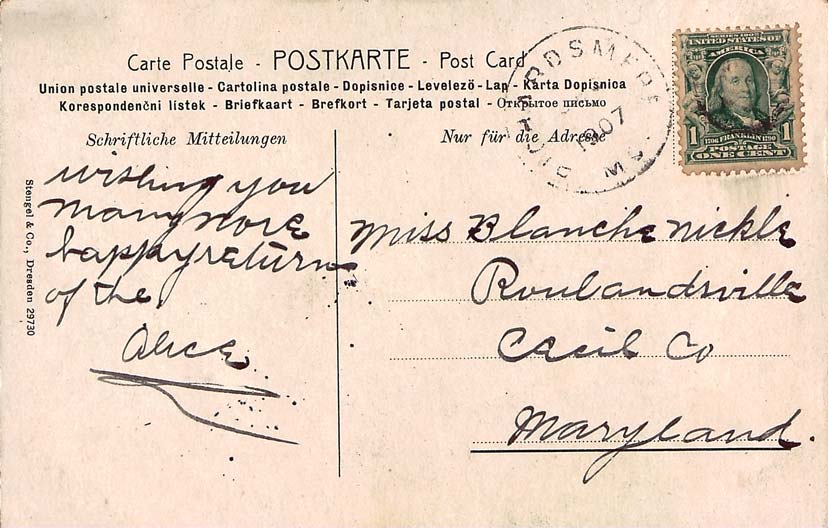 Carte Postale - POSTKARTE - Post Card
Union postale universelle - Cartolina postale - Dopisnice - Levelező-Lap - Karta Dopisnica
Korespondenčni lístek - Briefkaart - Brefkort - Tarjeta postal - Открытое письмо
Schriftliche Mitteilungen
Nur für die Adresse
1907
SERIES 1902
UNITED STATES OF
AMERICA
1706 FRANKLIN 1790
1 POSTAGE 1
ONE CENT
wishing you
many more
happy returns
of the
Alice
Miss Blanche Nickle
Roulandsville
Cecil Co
Maryland.
Stengel & Co., Dresden 29730